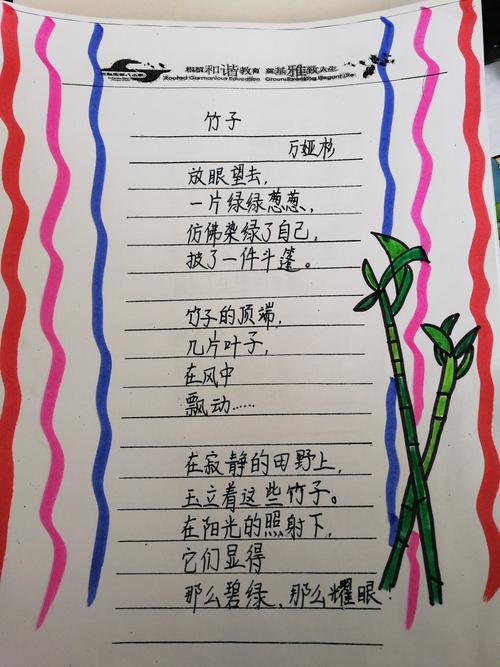 根植和谐教育 奠基雅致人生
Rooted Harmonious Education Groundbreaking Elegant Life
竹子
万娅杉
放眼望去，
一片绿绿葱葱，
仿佛染绿了自己，
披了一件斗篷。
竹子的顶端，
几片叶子，
在风中
飘动……
在寂静的田野上，
玉立着这些竹子。
在阳光的照射下，
它们显得
那么碧绿、那么耀眼。